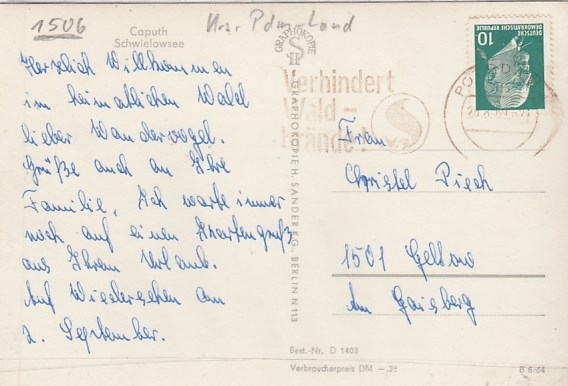 1506
Krs. Pdm-Land
Caputh
Schwielowsee
Herzlich Willkommen
im heimatlichen Wald
lieber Wandervogel.
Grüße auch an Ihre
Familie. Ich warte immer
noch auf einen Kartengruß
aus Ihrem Urlaub.
Auf Wiedersehen am
2. September.
GRAPHOKOPIE
GRAPHOKOPIE H. SANDER K.G. BERLIN N 113
Verhindert
Wald-
brände!
DEUTSCHE
DEMOKRATISCHE REPUBLIK
10
Frau
Christel Piech
1501 Geltow
Am Gaisberg
Best.-Nr. D 1403
Verbraucherpreis DM -.25
B 6/64